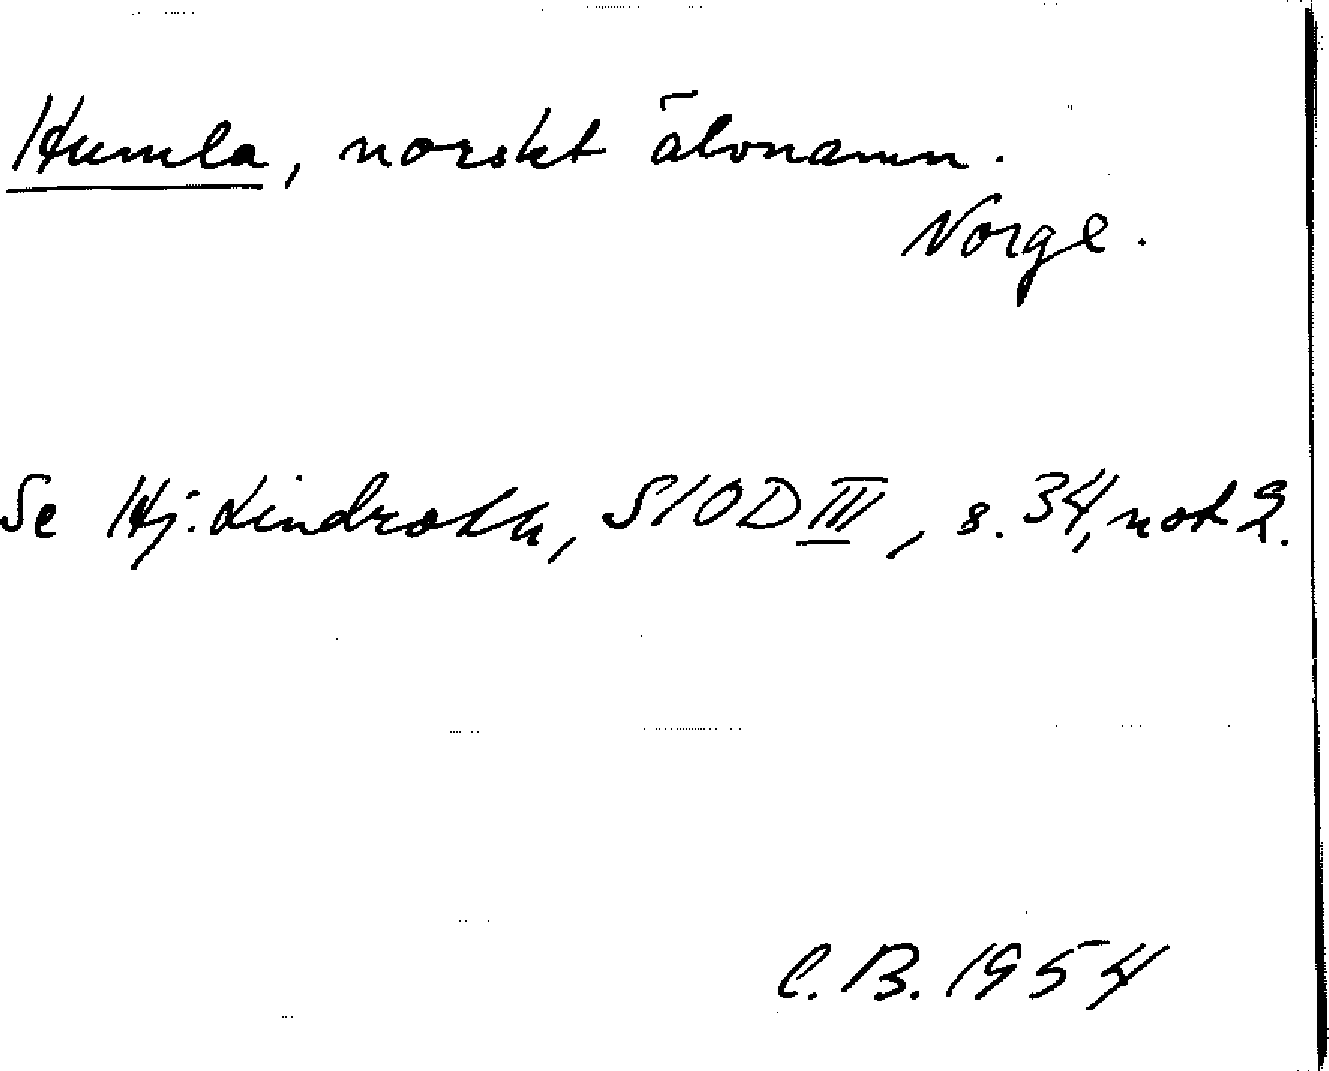 Humla, norskt älvnamn.
Norge.
Se Hj. Lindroth, SIOD III, s. 34, not 2.
C.B. 1954